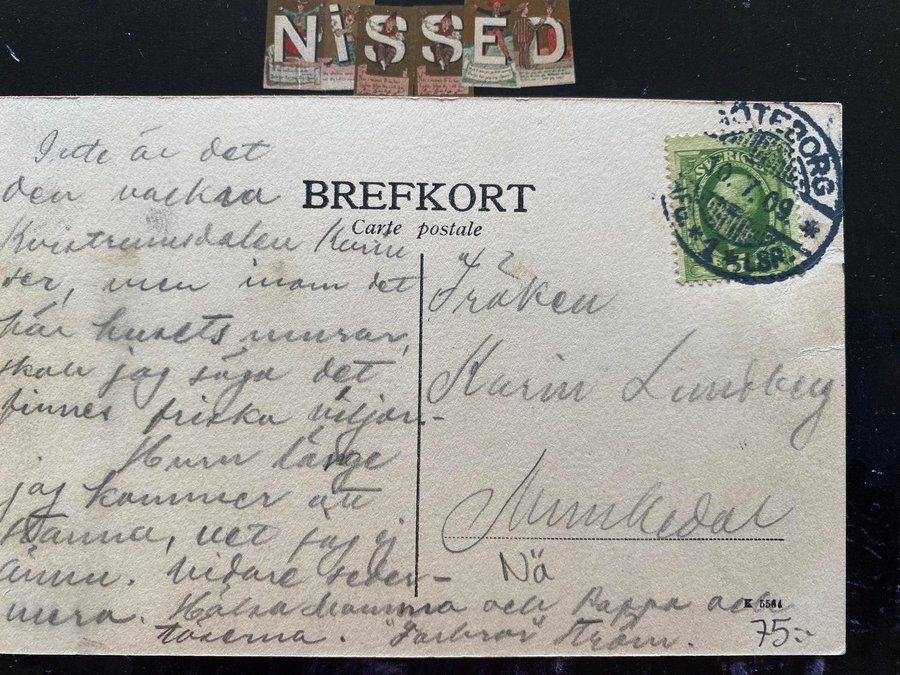 NISSED
BREFKORT
Carte postale
Inte är det
den vackra
Kvistrumsdalen Karin
ser, men inom det
här husets murar,
skall jag säga det
finnes friska viljor.-
Hurn länge
jag kommer att
stanna, vet jag ej
ännu. Vidare seder-
mera. Hälsa Mamma och Pappa och
töserna. "Farbror" Ström.
GÖTEBORG
SVERIGE
1. 09
* 1 * LBR. *
Fröken
Karin Lundberg
Munkedal
Nä
K 5564
75:-